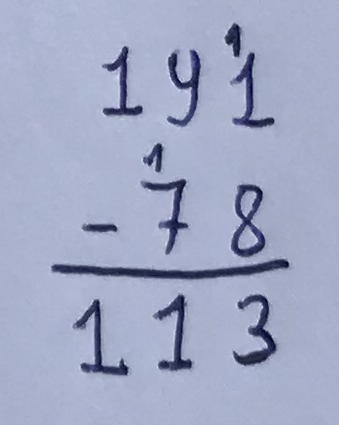 1
191
1
- 78
113